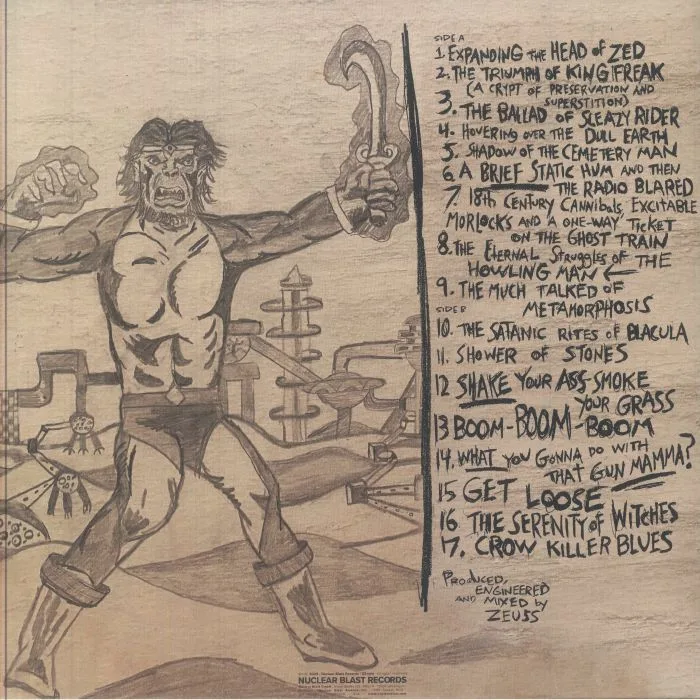 SIDE A
1. EXPANDING THE HEAD OF ZED
2. THE TRIUMPH OF KING FREAK
(A CRYPT OF PRESERVATION AND
SUPERSTITION)
3. THE BALLAD OF SLEAZY RIDER
4. HOVERING OVER THE DULL EARTH
5. SHADOW OF THE CEMETERY MAN
6. A BRIEF STATIC HUM AND THEN
THE RADIO BLARED
7. 18th CENTURY CANNIBALS, EXCITABLE
MORLOCKS AND A ONE-WAY TICKET
ON THE GHOST TRAIN
8. THE ETERNAL STRUGGLES OF THE
HOWLING MAN
9. THE MUCH TALKED OF
METAMORPHOSIS
SIDE B
10. THE SATANIC RITES OF BLACULA
11. SHOWER OF STONES
12 SHAKE YOUR ASS-SMOKE
YOUR GRASS
13 BOOM-BOOM-BOOM
14. WHAT YOU GONNA DO WITH
THAT GUN MAMMA?
15 GET LOOSE
16. THE SERENITY OF WITCHES
17. CROW KILLER BLUES
PRODUCED,
ENGINEERED
AND MIXED by
ZEUSS
NUCLEAR BLAST RECORDS